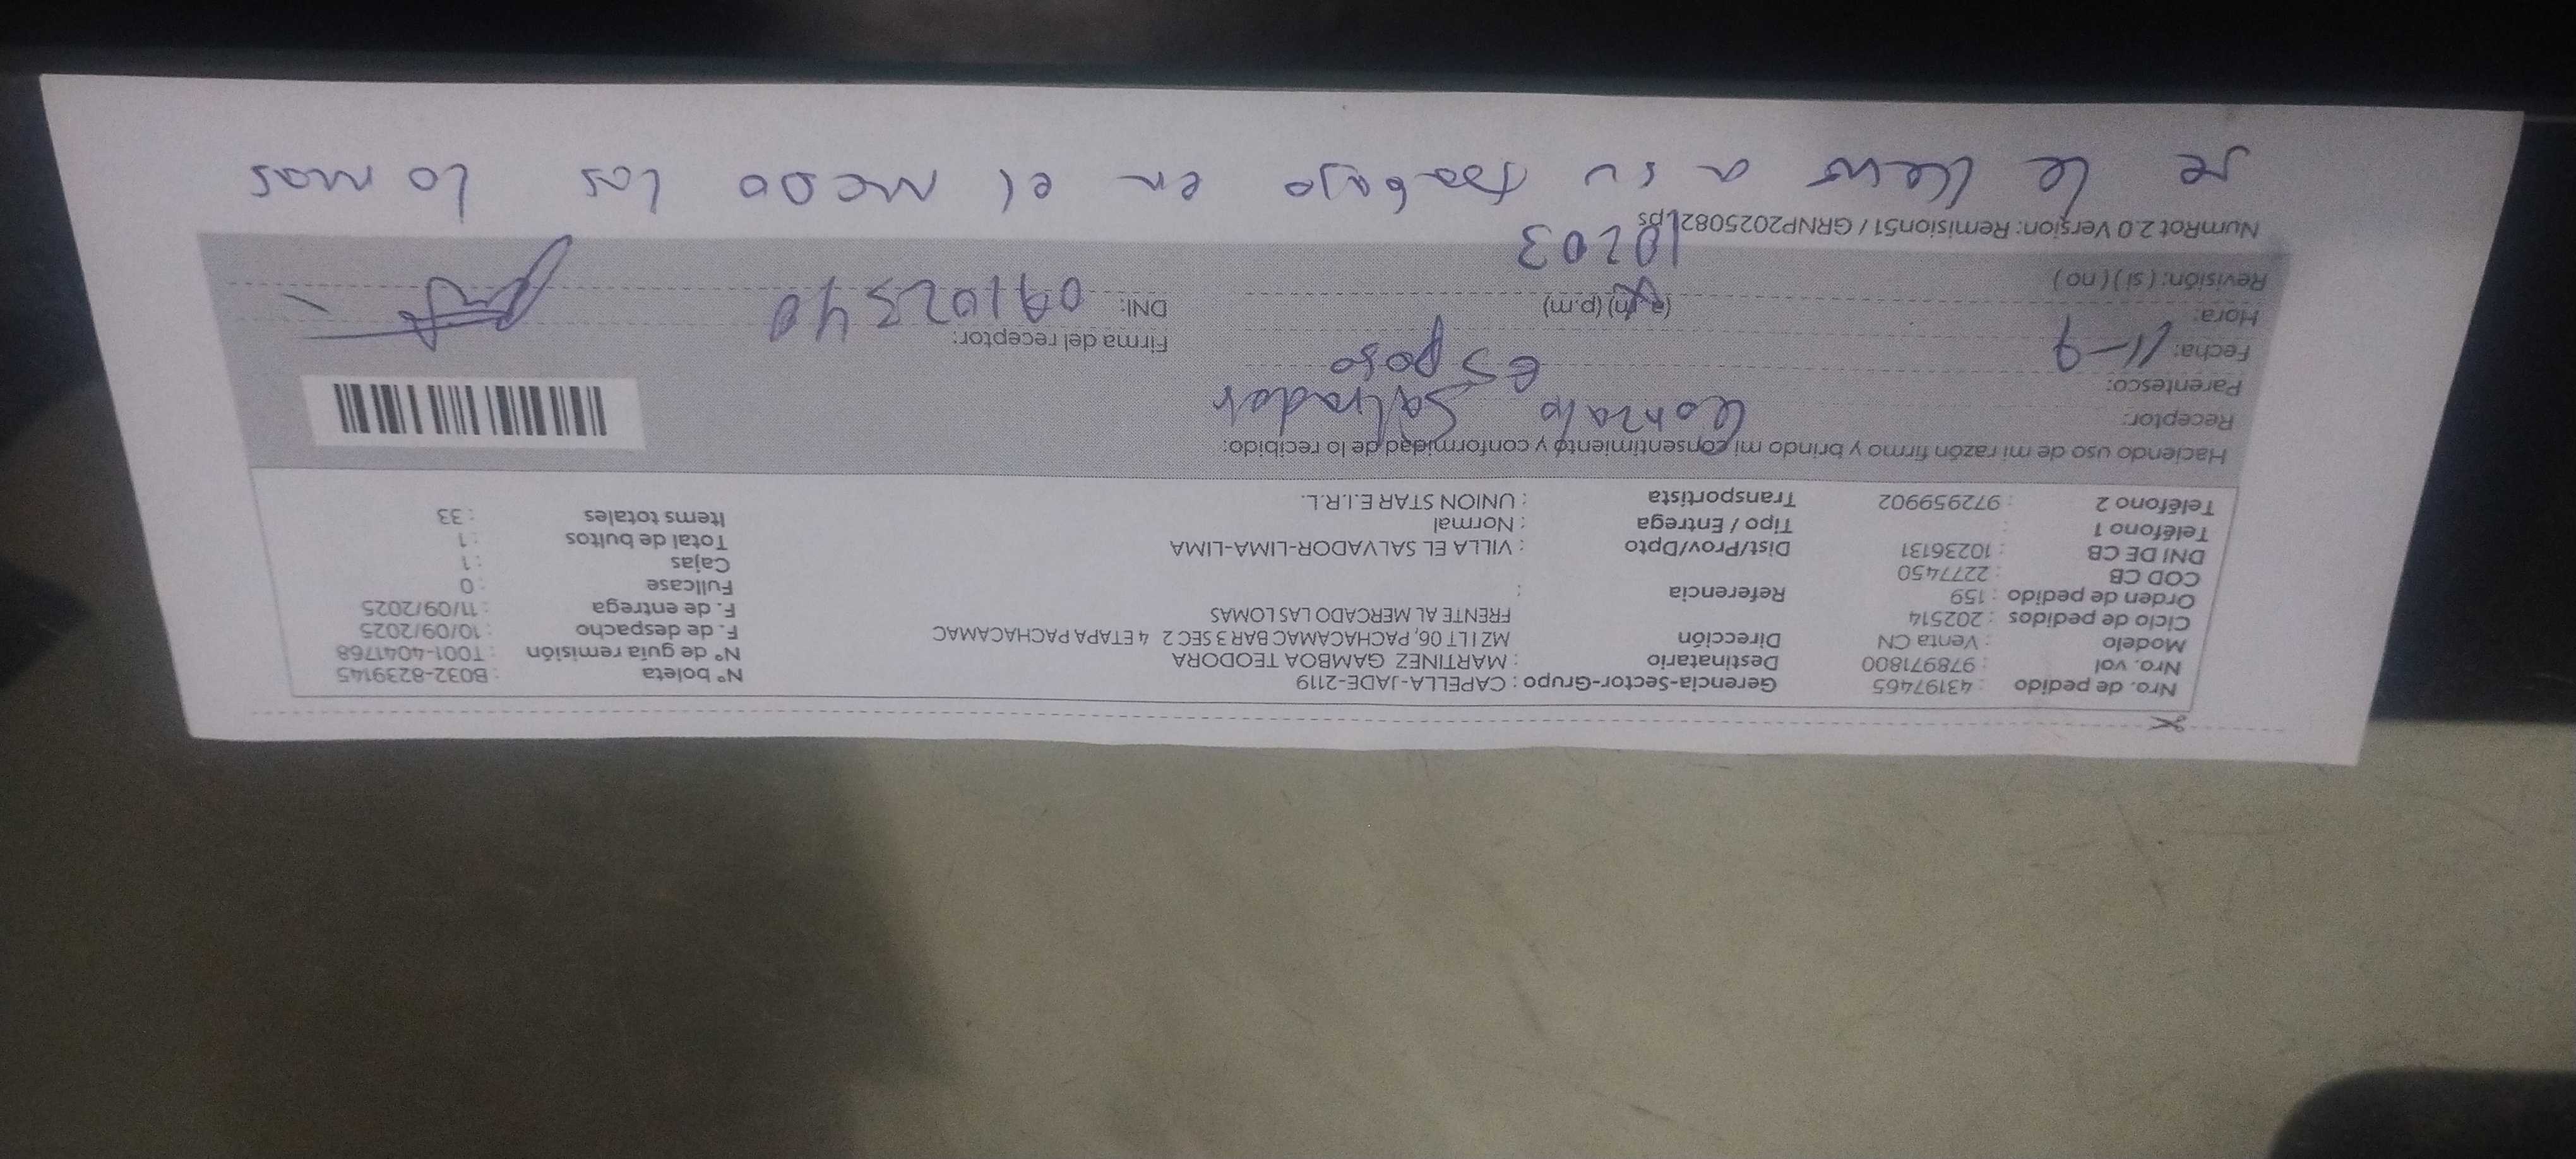 Nro. de pedido : 43197465 Gerencia-Sector-Grupo : CAPELLA-JADE-2119 N° boleta : B032-8239145
Nro. vol : 978971800 Destinatario : MARTINEZ GAMBOA TEODORA N° de guia remisión : T001-4041768
Modelo : Venta CN Dirección MZ I LT 06, PACHACAMAC BAR 3 SEC 2 4 ETAPA PACHACAMAC F. de despacho : 10/09/2025
Ciclo de pedidos : 202514 FRENTE AL MERCADO LAS LOMAS F. de entrega : 11/09/2025
Orden de pedido : 159 Referencia : Fullcase : 0
COD CB : 2277450 Cajas : 1
DNI DE CB : 10236131 Dist/Prov/Dpto : VILLA EL SALVADOR-LIMA-LIMA Total de bultos : 1
Teléfono 1 : Tipo / Entrega : Normal Items totales : 33
Teléfono 2 : 972959902 Transportista : UNION STAR E.I.R.L.
Haciendo uso de mi razón firmo y brindo mi consentimiento y conformidad de lo recibido:
Receptor: Gonzalo Salvador
Parentesco: esposo
Fecha: 11-9 Firma del receptor:
Hora: (a.m) (p.m) DNI:
Revisión: ( si ) ( no ) 10203
NumRot 2.0 Version: Remision51 / GRNP20250821.ps
se le llevo a su trabajo en el los lomas